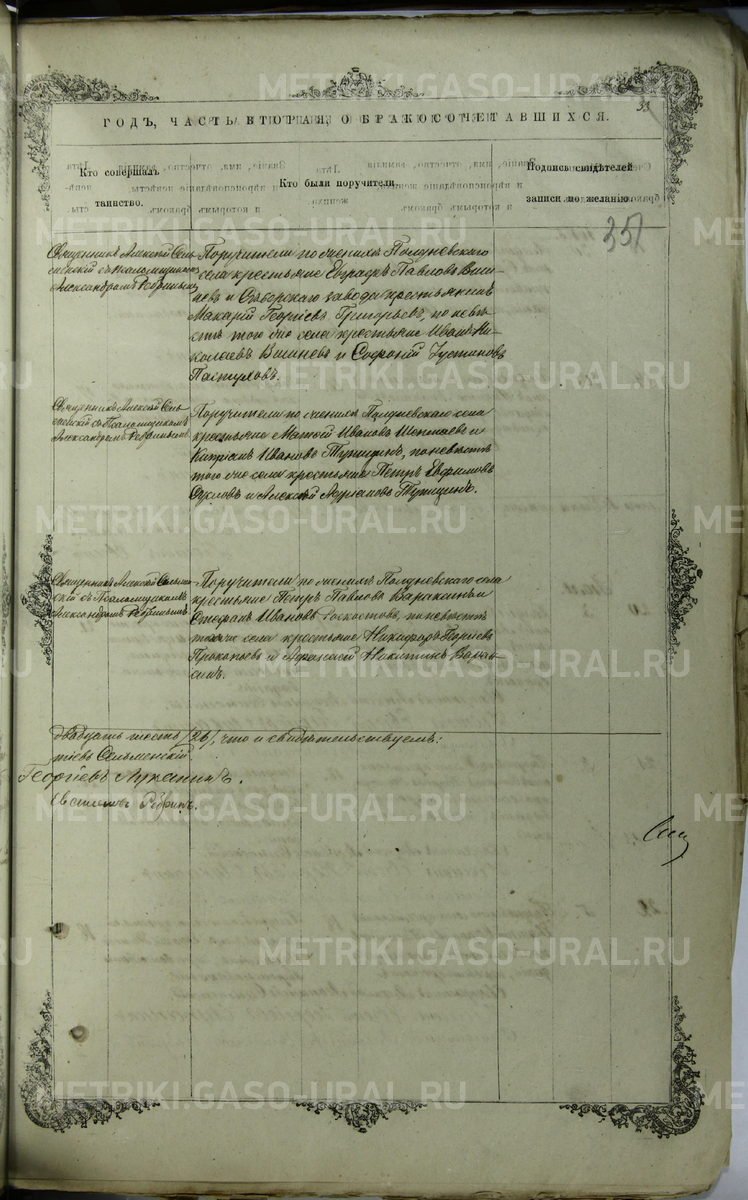 33
ГОДЪ, ЧАСТЬ ВТОРАЯ, О БРАКОСОЧЕТАВШИХСЯ.
Кто совершалъ
таинство.
Кто были поручители.
Подпись свидѣтелей
записи по желанію.
351
Священникъ Алексій Сель-
менскій съ псаломщикомъ
Александромъ
Поручители по женихѣ Полдневскаго
села крестьяне Евграфъ Павловъ Виш-
невъ и Сѣверскаго завода крестьянинъ
Макарій Георгіевъ Григорьевъ, по невѣ-
стѣ того же села крестьяне Иванъ Ни-
колаевъ Вишневъ и Софроній Густиновъ
Пастуховъ.
Священникъ Алексій Сель-
менскій съ Псаломщикомъ
Александромъ
Поручители по женихѣ Полдневскаго села
крестьяне Матѳей Ивановъ Шептаевъ и
Кипріанъ Ивановъ Тупицинъ, по невѣстѣ
того же села крестьяне Петръ Евфимовъ
и Алексѣй Адріановъ Тупицинъ.
Священникъ Алексій Сельмен-
скій съ Псаломщикомъ
Александромъ
Поручители по женихѣ Полдневскаго села
крестьяне Петръ Павловъ Варакинъ и
Стефанъ Ивановъ по невѣстѣ
того же села крестьяне Никифоръ Георгіевъ
Прокопьевъ и Афанасій Никитинъ Варак-
синъ.
двадцать шесть /26/, что и свидѣтельствуемъ:
тіевъ Сельменскій
Георгіевъ Луканинъ.
METRIKI.GASO-URAL.RU